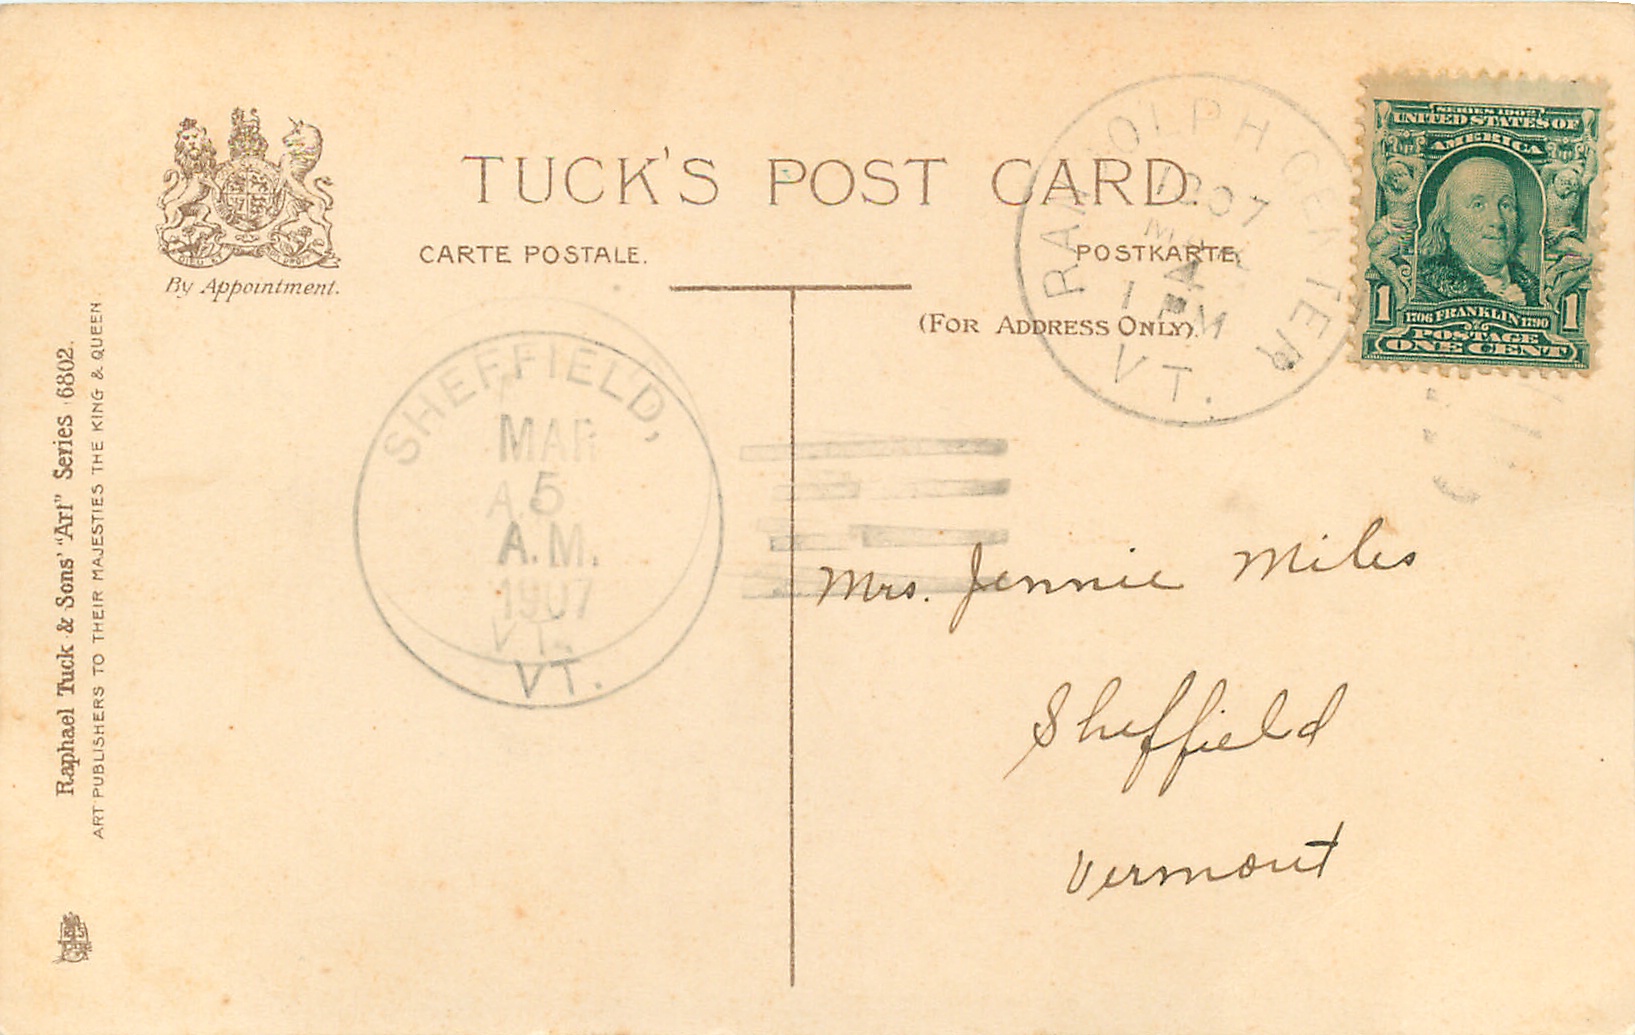 TUCK'S POST CARD.
CARTE POSTALE.
POSTKARTE.
(FOR ADDRESS ONLY).
By Appointment.
Raphael Tuck & Sons' "Art" Series 6802.
ART PUBLISHERS TO THEIR MAJESTIES THE KING & QUEEN.
RANDOLPH CENTER
1907
MAR
4
1 PM
VT.
SERIES 1902
UNITED STATES OF
AMERICA
1 1
1706 FRANKLIN 1790
POSTAGE
ONE CENT
SHEFFIELD,
MAR
5
A.M.
1907
VT.
Mrs. Jennie Miles
Sheffield
Vermont